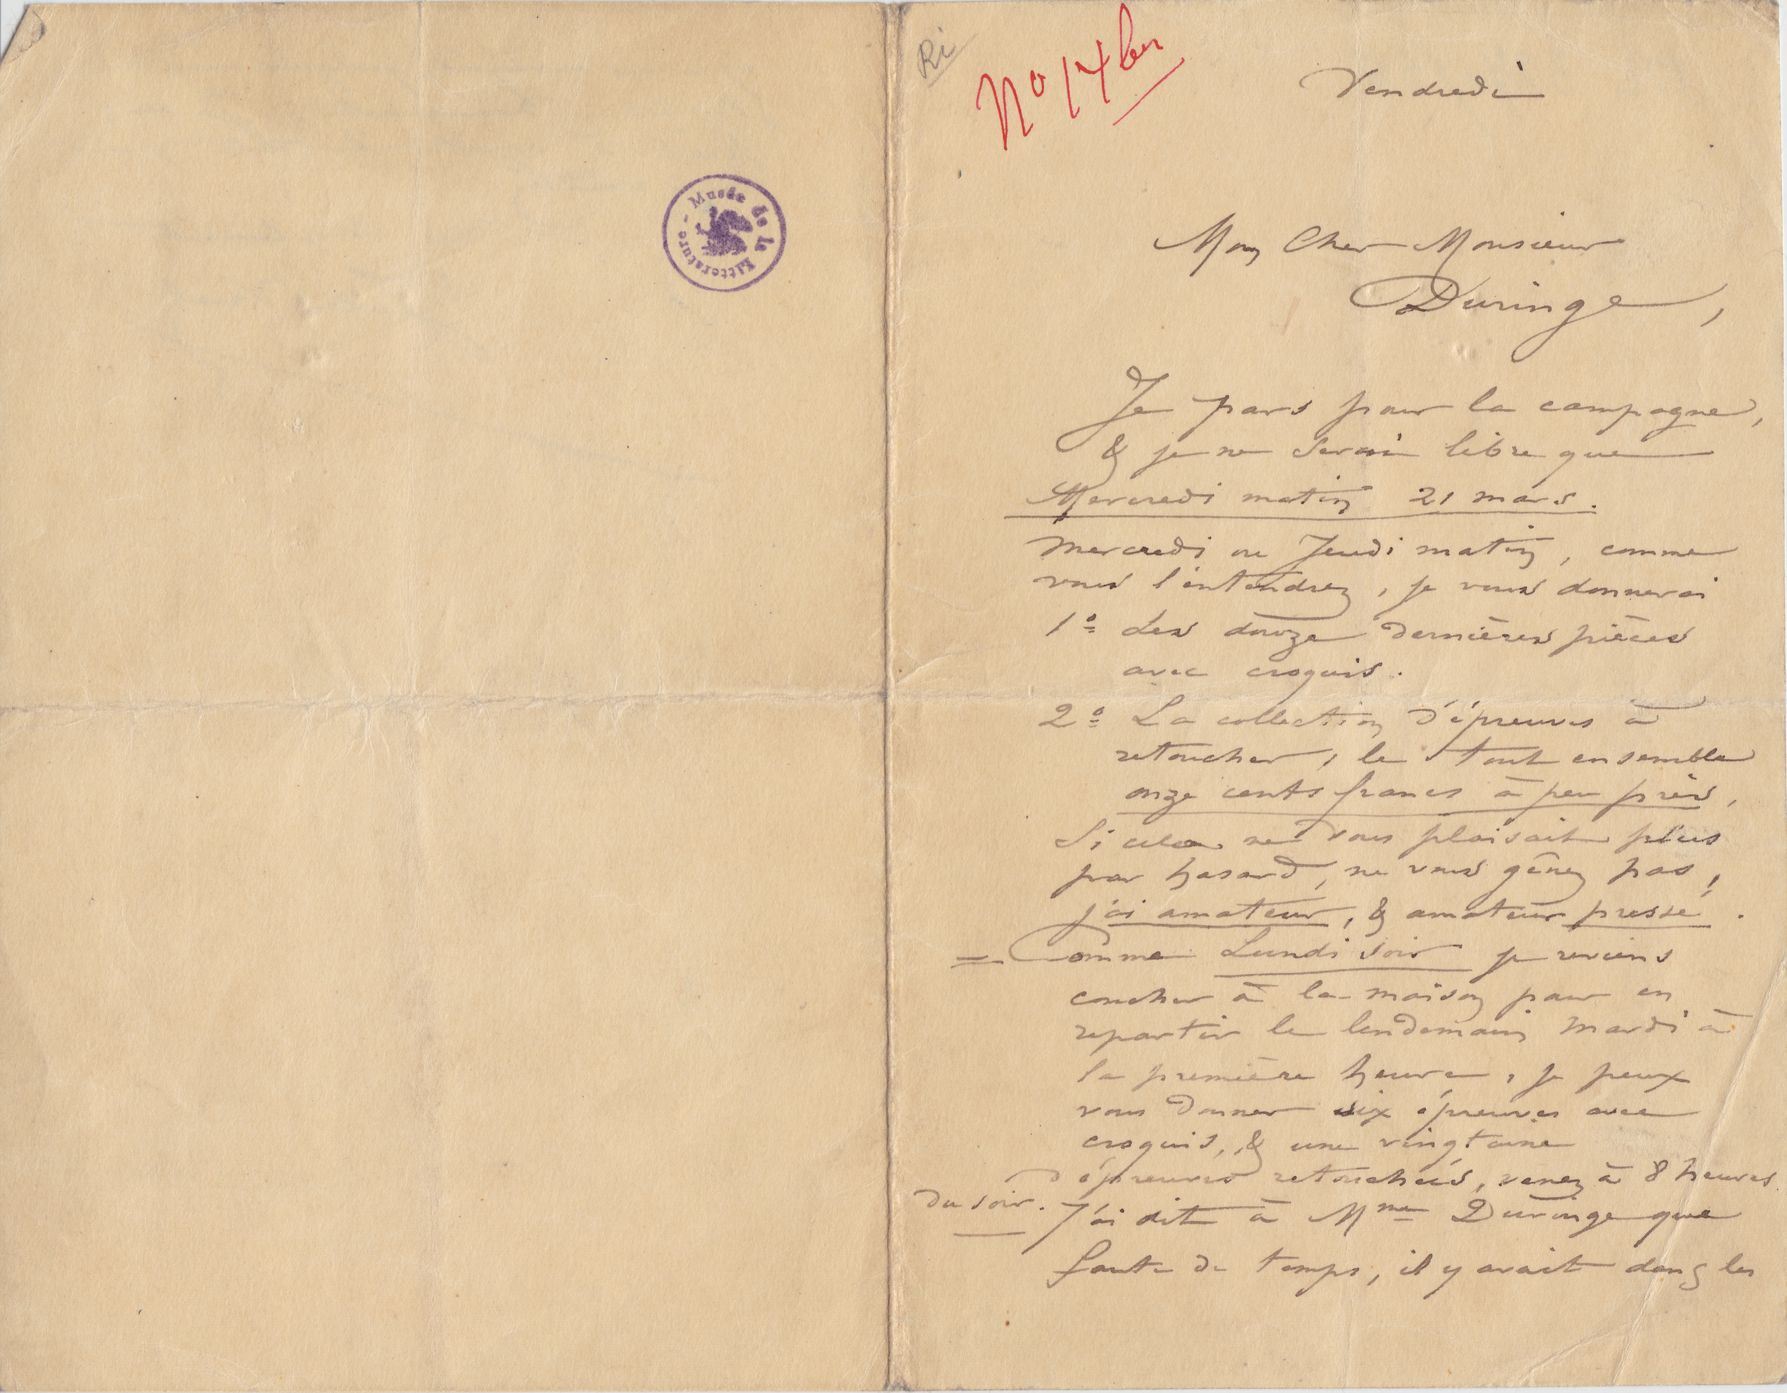 Musée de la Littérature -
Ri
No 14 ter
Vendredi
Mon Cher Monsieur
Duringe,
Je pars pour la campagne,
& je ne serai libre que
Mercredi matin 21 mars.
Mercredi ou Jeudi matin, comme
vous l'entendrez, je vous donnerai
1º Les douze dernières pièces
avec croquis.
2º La collection d'épreuves à
retoucher, le tout ensemble
onze cents francs à peu près,
Si cela ne vous plaisait plus
par hasard, ne vous gênez pas,
j'ai amateur, & amateur pressé.
= Comme Lundi soir je reviens
coucher à la maison pour en
repartir le lendemain Mardi à
la première heure, je peux
vous donner six épreuves avec
croquis, & une vingtaine
d'épreuves retouchées, venez à 8 heures
du soir. J'ai dit à Mme Duringe que
faute de temps, il y avait dans les